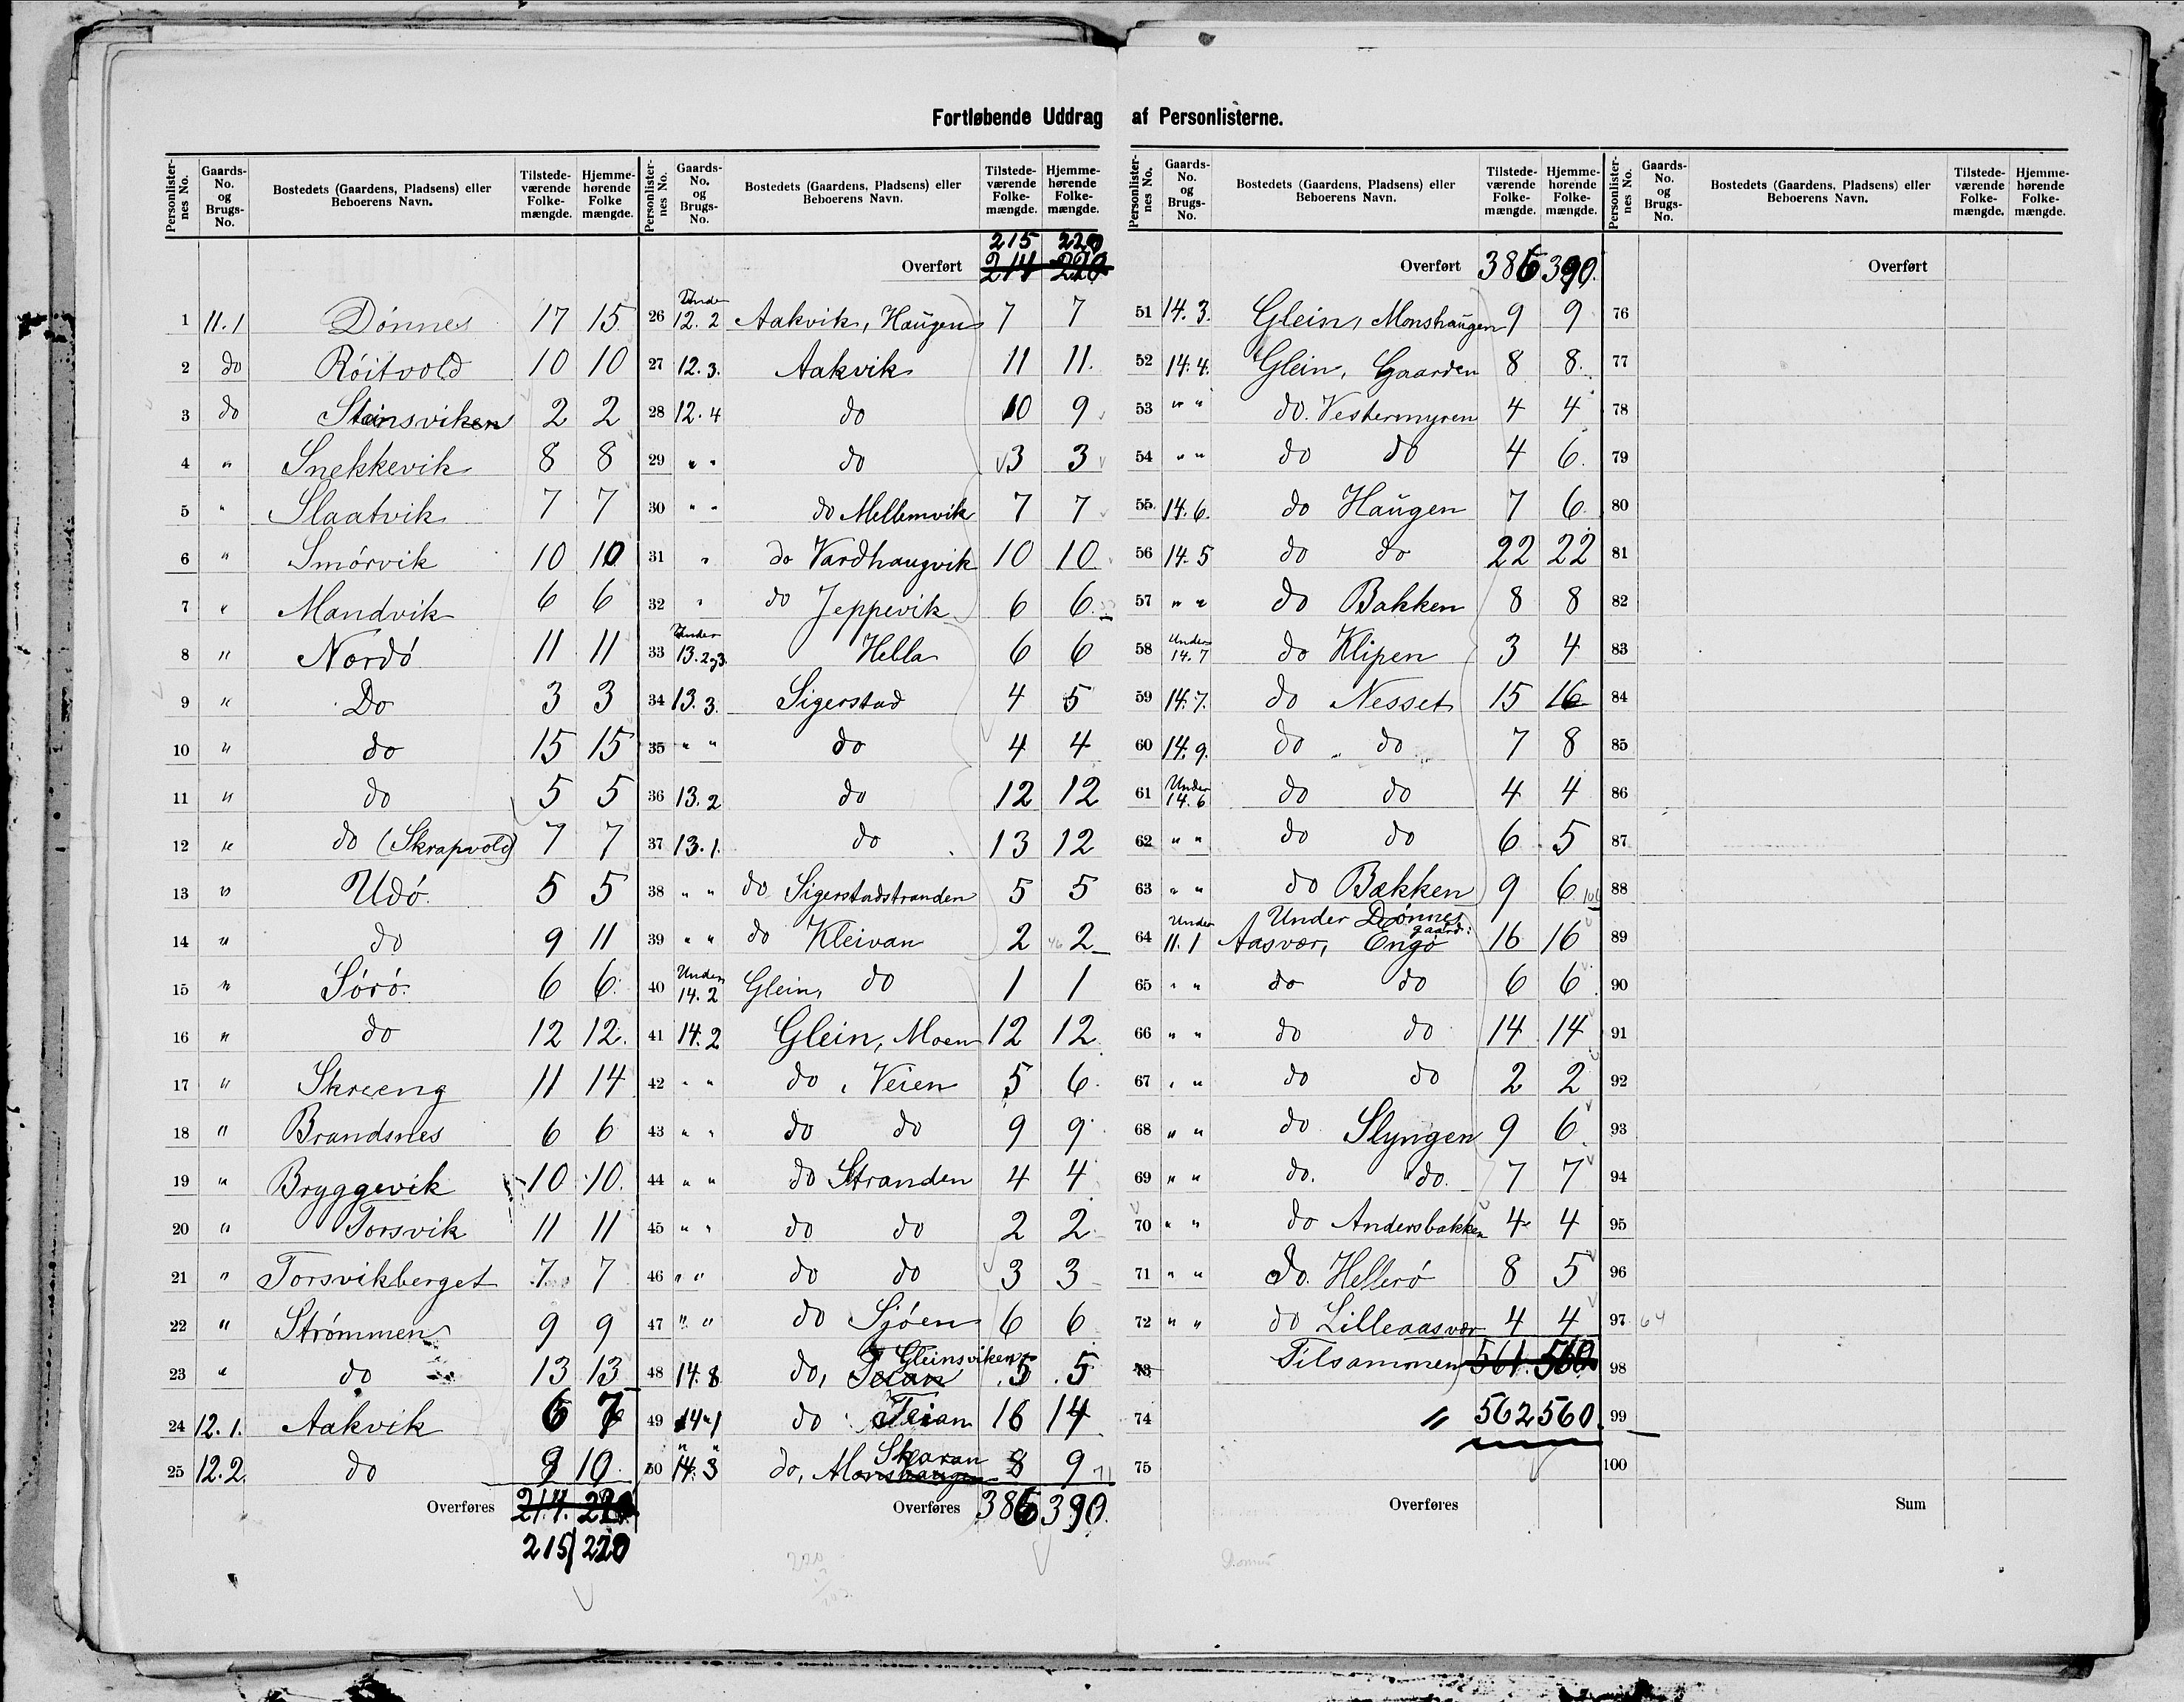 Fortløbende Uddrag af Personlisterne.
Personlister-nes No. Gaards-No. og Brugs-No. Bostedets (Gaardens, Pladsens) eller Beboerens Navn. Tilstede-værende Folke-mængde. Hjemme-hørende Folke mængde.
1 11.1 Dönnes 17 15
2 do Röitvold 10 10
3 do Steinsviken 2 2
4 " Snekkevik 8 8
5 " Slaatvik 7 7
6 " Smörvik 10 10
7 " Mandvik 6 6
8 " Nordö 11 11
9 " Do 3 3
10 " do 15 15
11 " do 5 5
12 " do (Skrapvold) 7 7
13 " Udö 5 5
14 " do 9 11
15 " Sörö 6 6
16 " do 12 12
17 " Skreeng 11 14
18 " Brandsnes 6 6
19 " Bryggevik 10 10
20 " Torsvik 11 11
21 " Torsvikberget 7 7
22 " Strömmen 9 9
23 " do 13 13
24 12.1. Aakvik 6 7
25 12.2. do 9 10
Overføres 214. 220
215 220
Personlister-nes No. Gaards-No. og Brugs-No. Bostedets (Gaardens, Pladsens) eller Beboerens Navn. Tilstede-værende Folke-mængde. Hjemme-hørende Folke-mængde.
215 220
Overført 214 220
26 Under 12.2 Aakvik, Haugen 7 7
27 12.3. Aakvik 11 11.
28 12.4 do 10 9
29 " " do 3 3
30 " " do Mellemvik 7 7
31 " do Vardhaugvik 10 10
32 " do Jeppevik 6 6
33 Under 13.2og3 Hella 6 6
34 13.3. Sigerstad 4 5
35 " " do 4 4
36 13.2 do 12 12
37 13.1. do 13 12
38 " " do Sigerstadstranden 5 5
39 " " do Kleivan 2 46 2
40 Under 14.2 Glein, do 1 1
41 14.2 Glein, Moen 12 12
42 " " do, Veien 5 6
43 " " do do 9 9
44 " " do Stranden 4 4
45 " " do do 2 2
46 " " do do 3 3
47 " " do Sjöen 6 6
48 14.8 do, Teian Gleinsviken 5 5
49 14.1 do Teian 16 14
50 " " 14.3 do, Monshaugen Skaran 8 9 71
Overføres 386 390.
Personlister-nes No. Gaards-No. og Brugs-No. Bostedets (Gaardens, Pladsens) eller Beboerens Navn. Tilstede-værende Folke-mængde. Hjemme-hørende Folke-mængde.
Overført 386 390.
51 14.3. Glein, Monshaugen 9 9
52 14.4. Glein, Gaarden 8 8.
53 " " do. Vestermyren 4 4
54 " " do do 4 6.
55 14.6. do Haugen 7 6
56 14.5 do do 22 22
57 " " do Bakken 8 8
58 Under 14.7 do Klipen 3 4
59 14.7. do Nesset 15 16
60 14.9. do do 7 8
61 Under 14.6 do do 4 4
62 " " do do 6 5
63 " " do Bakken 9 6
Under Dönnes gaard:
64 Under 11.1 Aasvær, Engö 16 16
65 " " do do 6 6
66 " " do do 14 14
67 " " do do 2 2
68 " " do Slyngen 9 6
69 " " do. do. 7 7
70 " " do Andersbakken 4 4
71 " " Do. Hellerö 8 5
72 " " do Lilleaasvær 4 4
73 Tilsammen 561. 560
74 " 562 560.
75
Overføres
Personlister-nes No. Gaards-No. og Brugs-No. Bostedets (Gaardens, Pladsens) eller Beboerens Navn. Tilstede-værende Folke-mængde. Hjemme-hørende Folke-mængde.
Overført
76
77
78
79
80
81
82
83
84
85
86
87
88
89
90
91
92
93
94
95
96
97 64
98
99
100
Sum